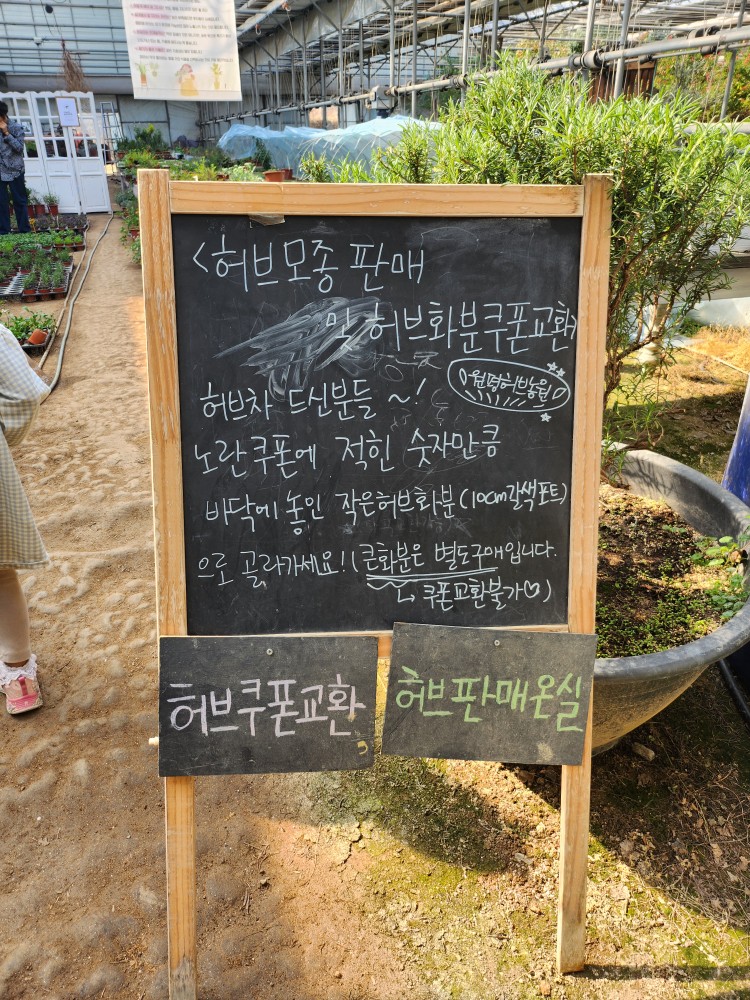 <허브모종 판매
및 허브화분쿠폰교환>
월평허브농원
허브차 드신분들 ~!
노란쿠폰에 적힌 숫자만큼
바닥에 놓인 작은허브화분(10cm갈색포트)
으로 골라가세요! (큰화분은 별도구매입니다.
↳ 쿠폰교환불가♡)
허브쿠폰교환
허브판매온실